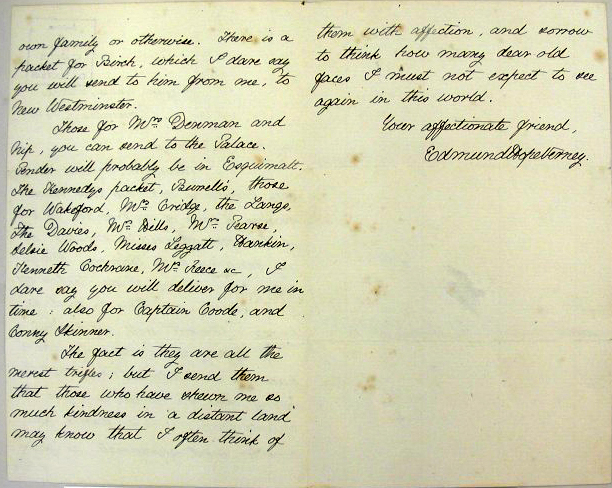 own family or otherwise. There is a
packet for Birch, which I dare say
you will send to him from me, to
New Westminster.
Those for Mrs Denman and
Nip, you can send to the Palace.
Pender will probably be in Esquimalt.
The Kennedys packet, Bunell's, those
for Wakeford, Mrs Cridge, the Langs,
the Davies, Mrs Hills, Mrs Pearse,
Woods, Misses Leggatt, Hankin,
Kenneth Cochrane, Mrs Reece &c, I
dare say you will deliver for me in
time : also for Captain Coode, and
Conny Skinner.
The fact is they are all the
merest trifles ; but I send them
that those who have shewn me so
much kindness in a distant land
may know that I often think of
them with affection, and sorrow
to think how many dear old
faces I must not expect to see
again in this world.
Your affectionate friend,
Edmund Hope Verney.